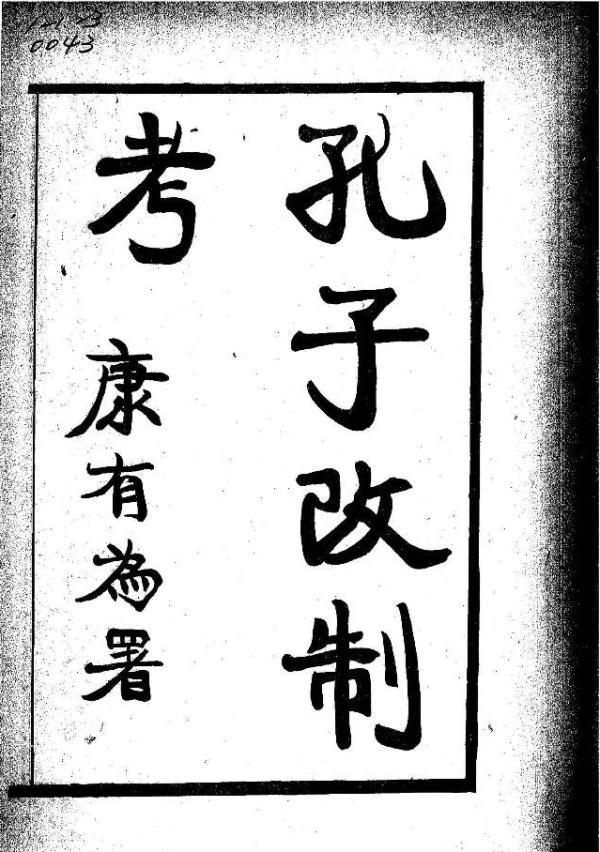 0043
孔子改制
考 康有為署